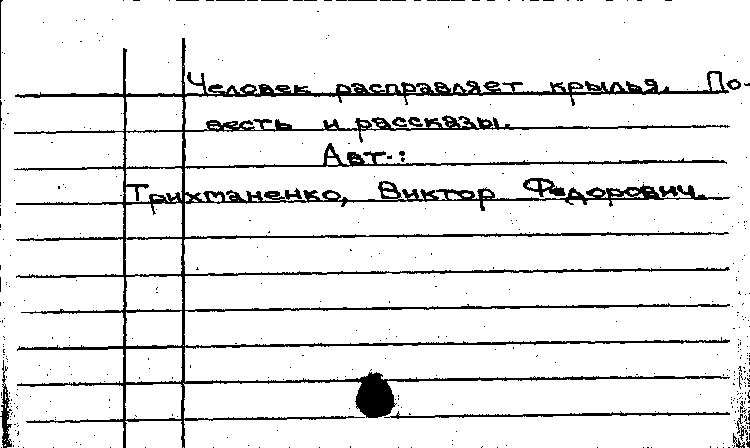 Человек расправляет крылья. По-
весть и рассказы.
Авт.:
Трихманенко, Виктор Федорович.